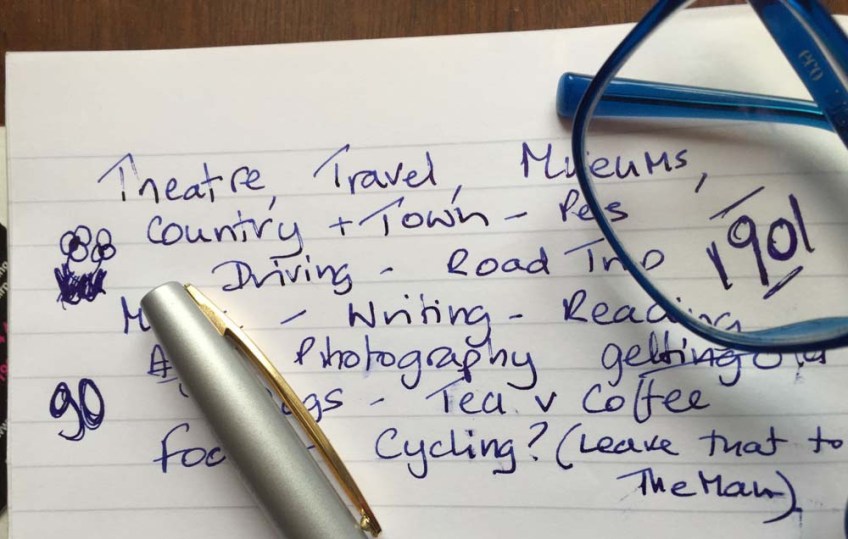 Theatre, Travel, Museums,
Country + Town - Pets
Driving - Road Trip
1901
- Writing - Reading
Photography getting Old
90
- Tea v Coffee
Cycling? (Leave that to
The Man)
eco